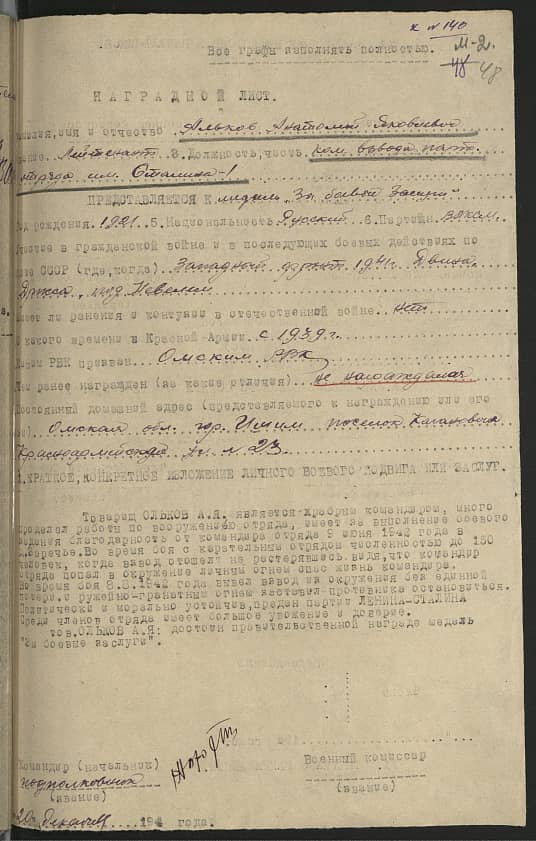 к № 140
Все графы заполнять полностью.
М-2.
48 48
НАГРАДНОЙ ЛИСТ.
имя и отчество Альков Анатолий Яковлевич
Лейтенант 3. Должность, часть Ком. взвода парт.
отряда им. Сталина-1
ПРЕДСТАВЛЯЕТСЯ К медали „За боевые заслуги"
Год рождения 1921 5. Национальность Русский 6. Партийн. ВЛКСМ
Участие в гражданской войне и в последующих боевых действиях по
СССР (где, когда) Западный фронт 1941г. Двина,
Дрисса, под Невелем
ли ранения и контузии в отечественной войне. нет
С какого времени в Красной Армии с 1939 г.
Каким РВК призван Омским РВК
Чем ранее награжден (за какие отличия) не награждался
Постоянный домашний адрес (представляемого к награждению или его
Омская обл. гор. Ишим поселок Кагановича
Красноармейская № 23
1. КРАТКОЕ, КОНКРЕТНОЕ ИЗЛОЖЕНИЕ ЛИЧНОГО БОЕВОГО ПОДВИГА ИЛИ ЗАСЛУГ.
Товарищ ОЛЬКОВ А.Я. является храбрым командиром, много
проделал работы по вооружению отряда, имеет за выполнение боевого
задания благодарность от командира отряда 9 июня 1942 года в
д. Заречье. Во время боя с карательным отрядом численностью до 150
человек, когда взвод отошел на растерявшись. видя, что командир
отряда попал в окружение личным огнем спас жизнь командира.
Во время боя 8.8.1942 года вывел взвод из окружения без единной
потери, с ружейно-гранатным огнем заставил противника остановиться.
Политически и морально устойчив, предан партии ЛЕНИНА-СТАЛИНА
Среди членов отряда имеет большое уважение и доверие.
тов. ОЛЬКОВ А.Я: достоин правительственной награде медаль
"За боевые заслуги".
Командир (начальник)
Военный комиссар
подполковник
(звание)
(звание)
20 декабря 194 года.